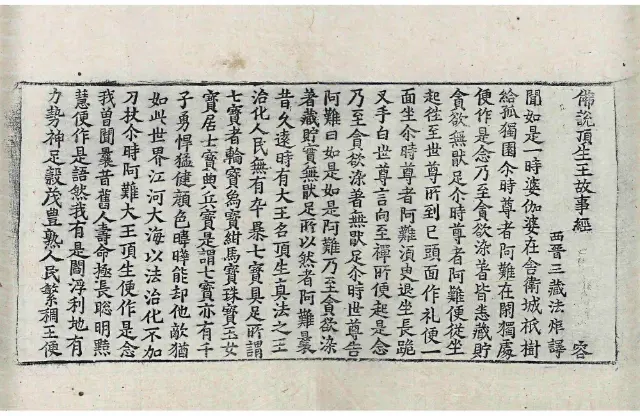 佛說頂生王故事經
西晉三藏法炬譯 容
聞如是一時婆伽婆在舍衛城祇樹
給孤獨園尒時尊者阿難在閑獨處
便作是念乃至貪欲染著皆悉藏貯
貪欲無猒足尒時尊者阿難便從坐
起往至世尊所到已頭面作礼便一
面坐尒時尊者阿難湏臾退坐長跪
叉手白世尊言向至禪所便起是念
乃至貪欲染著無猒足尒時世尊告
阿難曰如是如是阿難乃至貪欲染
著藏貯實無猒足所以然者阿難曩
昔久遠時有大王名頂生真法之王
治化人民無有卒暴七寶具足所謂
七寶者輪寶為寶紺馬寶珠寶玉女
寶居士寶典兵寶是謂七寶亦有千
子勇悍猛健顏色暐曄能却他敵猶
如此世界江河大海以法治化不加
刀杖尒時阿難大王頂生便作是念
我曽聞曩昔舊人壽命極長聡明黠
慧便作是語然我有是閻浮利地有
力勢神足穀茂豊熟人民繁稠王便